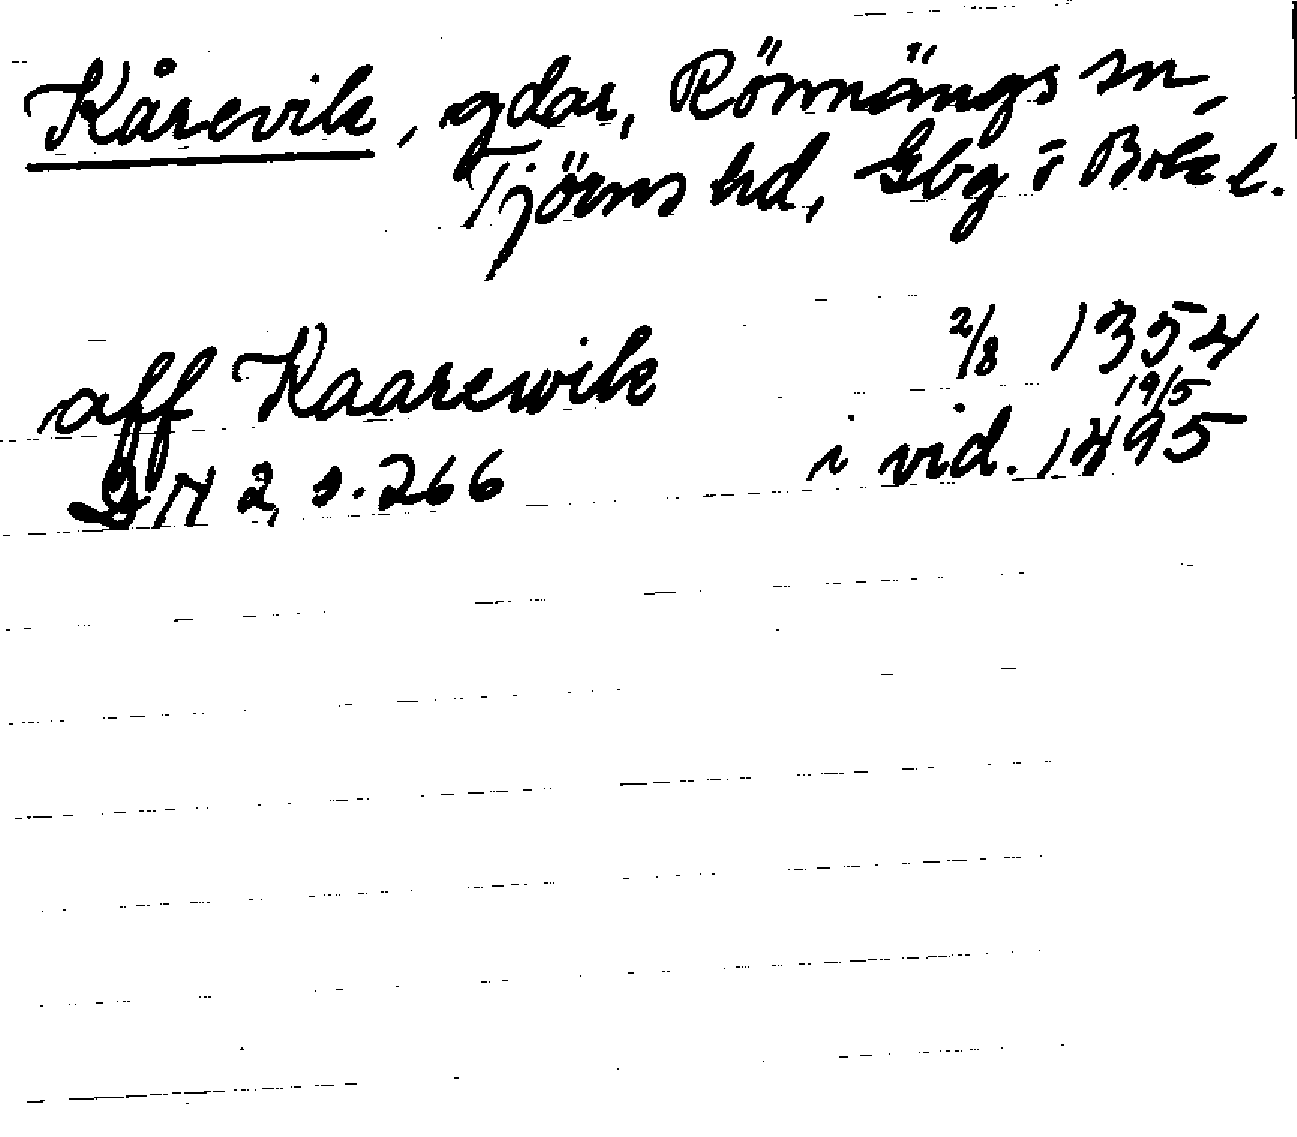 Kårevik, gdar, Rönnängs sn,
Tjörns hd, Gbg i Boh l.
aff Kaarewik 2/8 1354
19/5
DN 2, s. 266 i vid. 1495